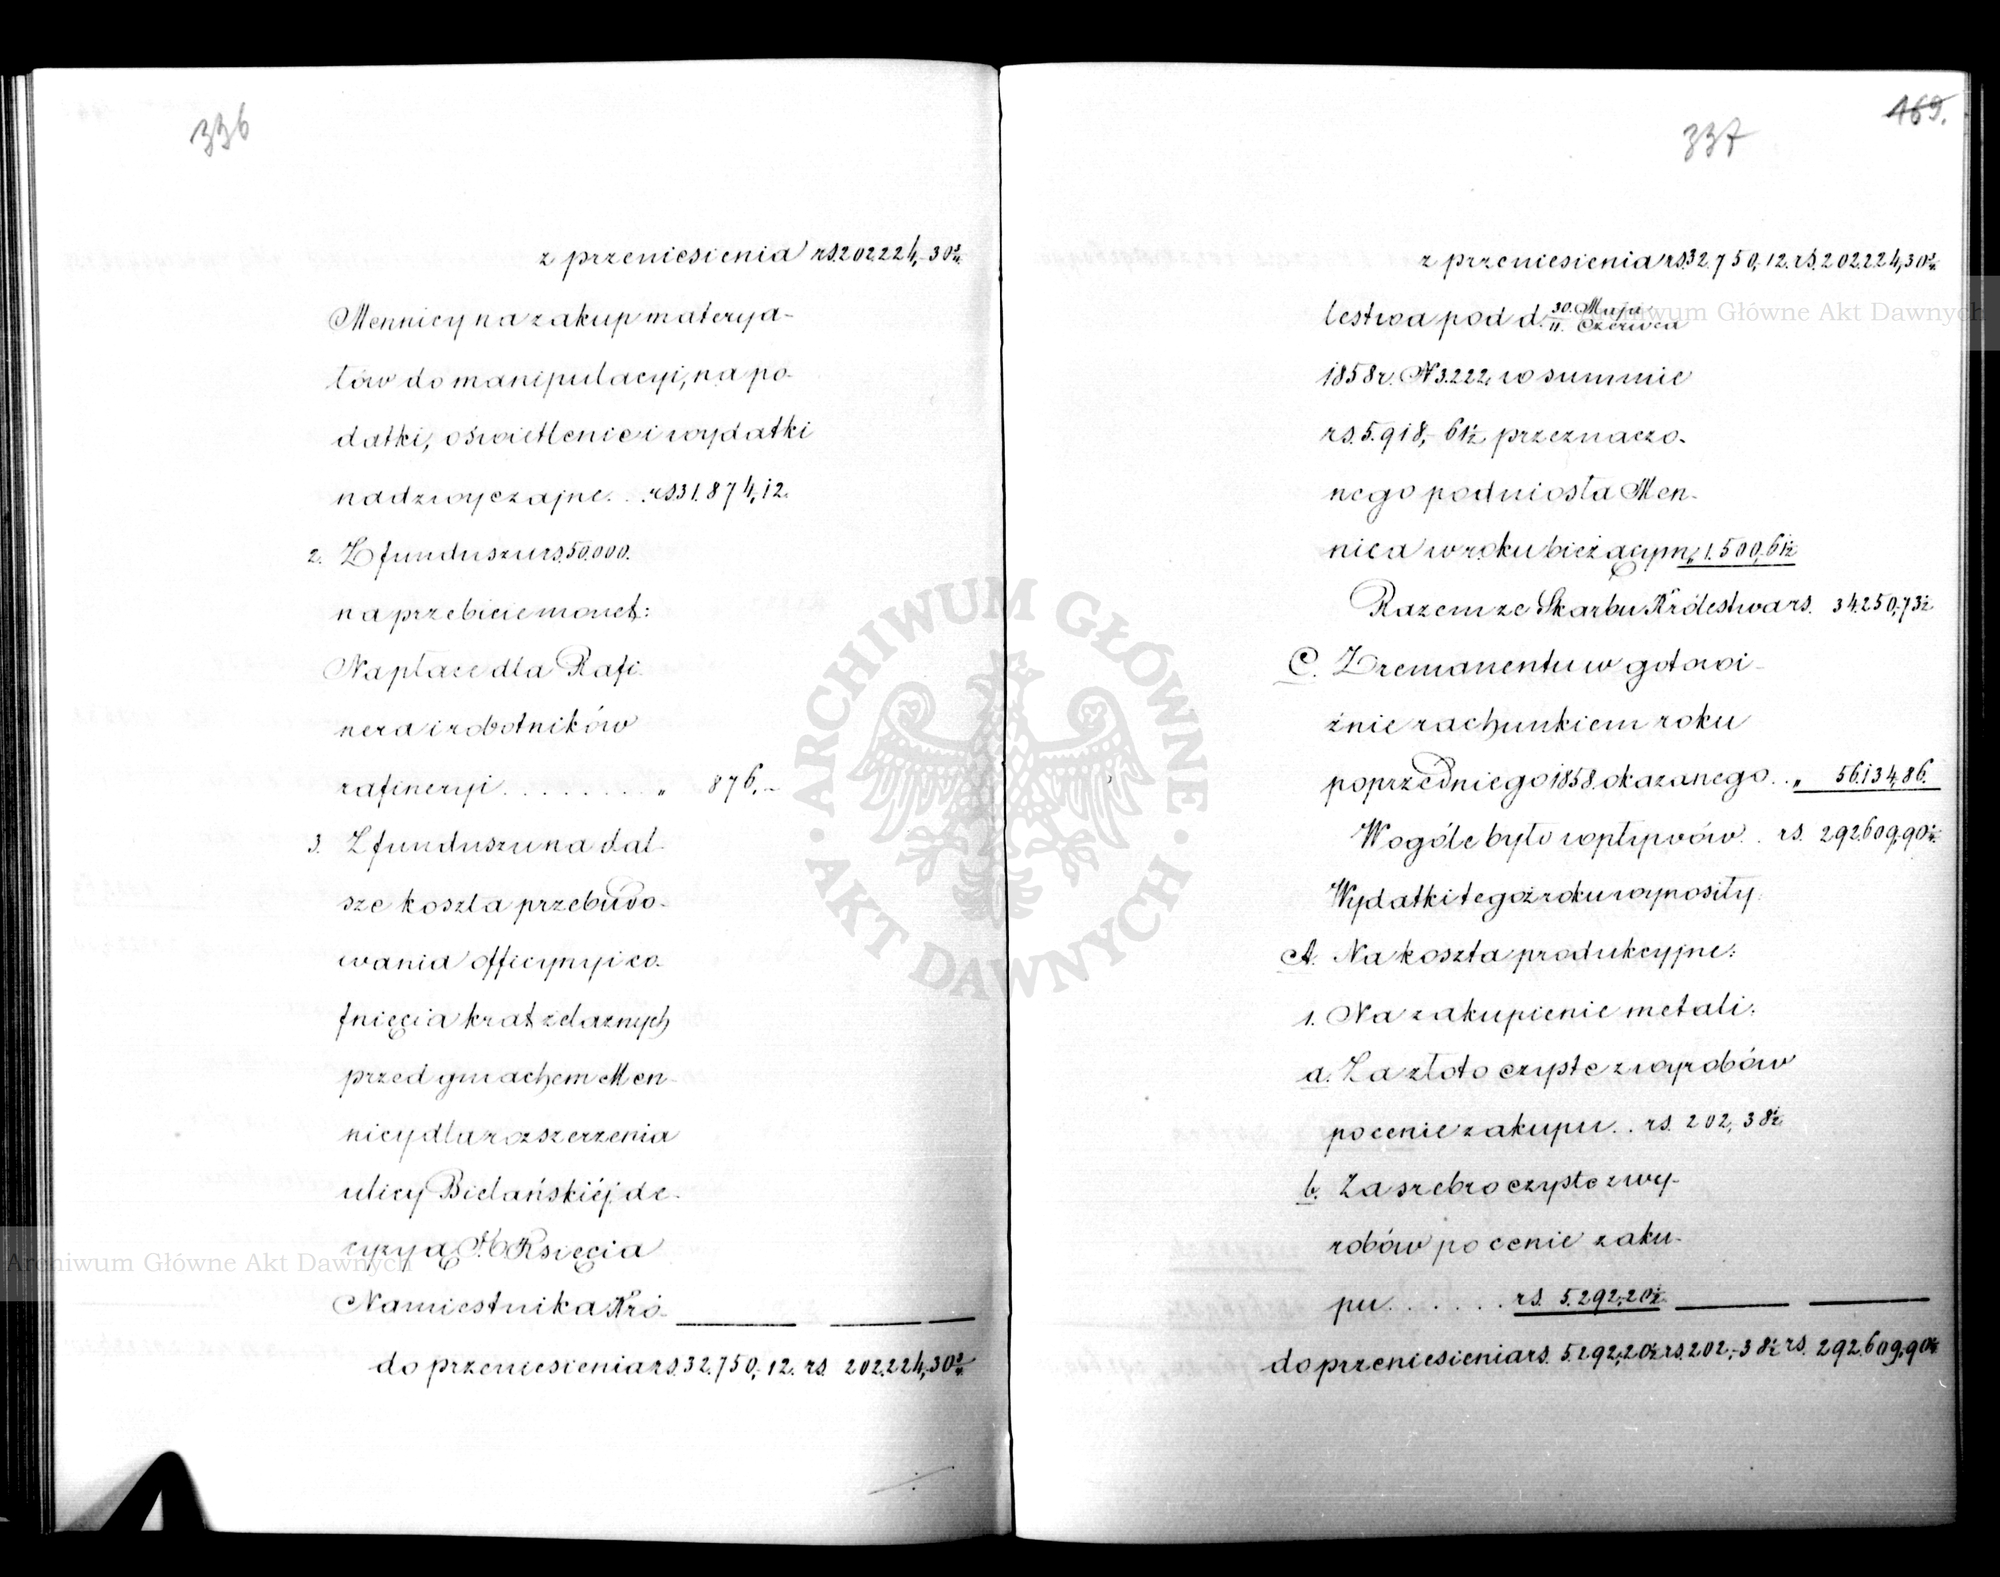 336
z przeniesienia rs. 202.224,30¾.
Mennicy na zakup materya-
łów do manipulacyi, na po-
datki, oświetlenie i wydatki
nadzwyczajne. . . rs. 31.874,12.
2. Z funduszu rs. 50.000.
na przebicie monet:
Na płace dla Rafi-
nera i robotników
rafineryi . . . . . . . . „ 876,—
3. Z funduszu na dal-
sze koszta przebudo-
wania officyny i co-
fnięcia krat żelaznych
przed gmachem Men-
nicy dla rozszerzenia
ulicy Bielańskiéj, de-
cyzyą Księcia
Namiestnika Kró-
do przeniesienia rs. 32.750,12. rs. 202.224,30¾.
469.
337
z przeniesienia rs. 32.750,12. rs. 202.224,30¾
lestwa pod d. 30. Maja / 11. Czerwca
1858 r. N 3.222. w summie
rs. 5.918,61½ przeznaczo-
nego podniosła Men-
nica w roku bieżącym „ 1.500,61½
Razem ze Skarbu Królestwa rs. 34.250,73½
C. Z remanentu w gotowi-
źnie rachunkiem roku
poprzedniego 1858. okazanego . . „ 56.134,86.
W ogóle było wpływów . . rs. 292.609,90¼.
Wydatki tegoż roku wynosiły:
A. Na koszta produkcyjne:
1. Na zakupienie metali:
a. Za złoto czyste z wyrobów
po cenie zakupu . . rs. 202,38½
b. Za srebro czyste z wy-
robów po cenie zaku-
pu . . . . . . rs. 5.292,20½
do przeniesienia rs. 5.292,20½ rs. 202,38½ rs. 292.609,90¼
Archiwum Główne Akt Dawnych
Archiwum Główne Akt Dawnych
ARCHIWUM GŁÓWNE · AKT DAWNYCH ·